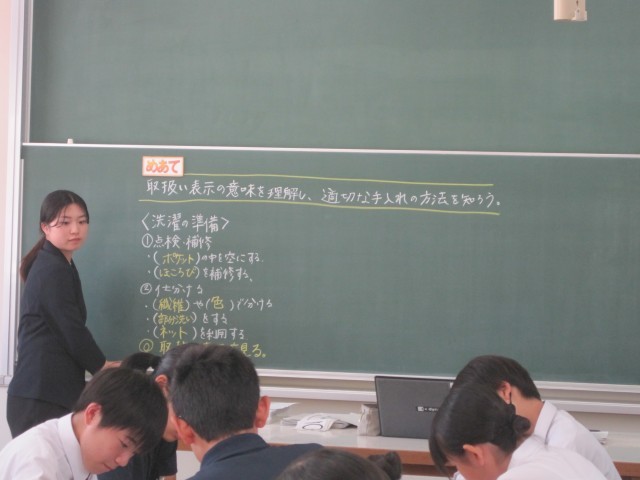 めあて
取扱い表示の意味を理解し、適切な手入れの方法を知ろう。
〈洗濯の準備〉
①点検・補修
・(ポケット)の中を空にする。
・(ほころび)を補修する。
②仕分ける
・(繊維)や(色)で分ける
・(部分洗い)をする
・(ネット)を利用する
見る。